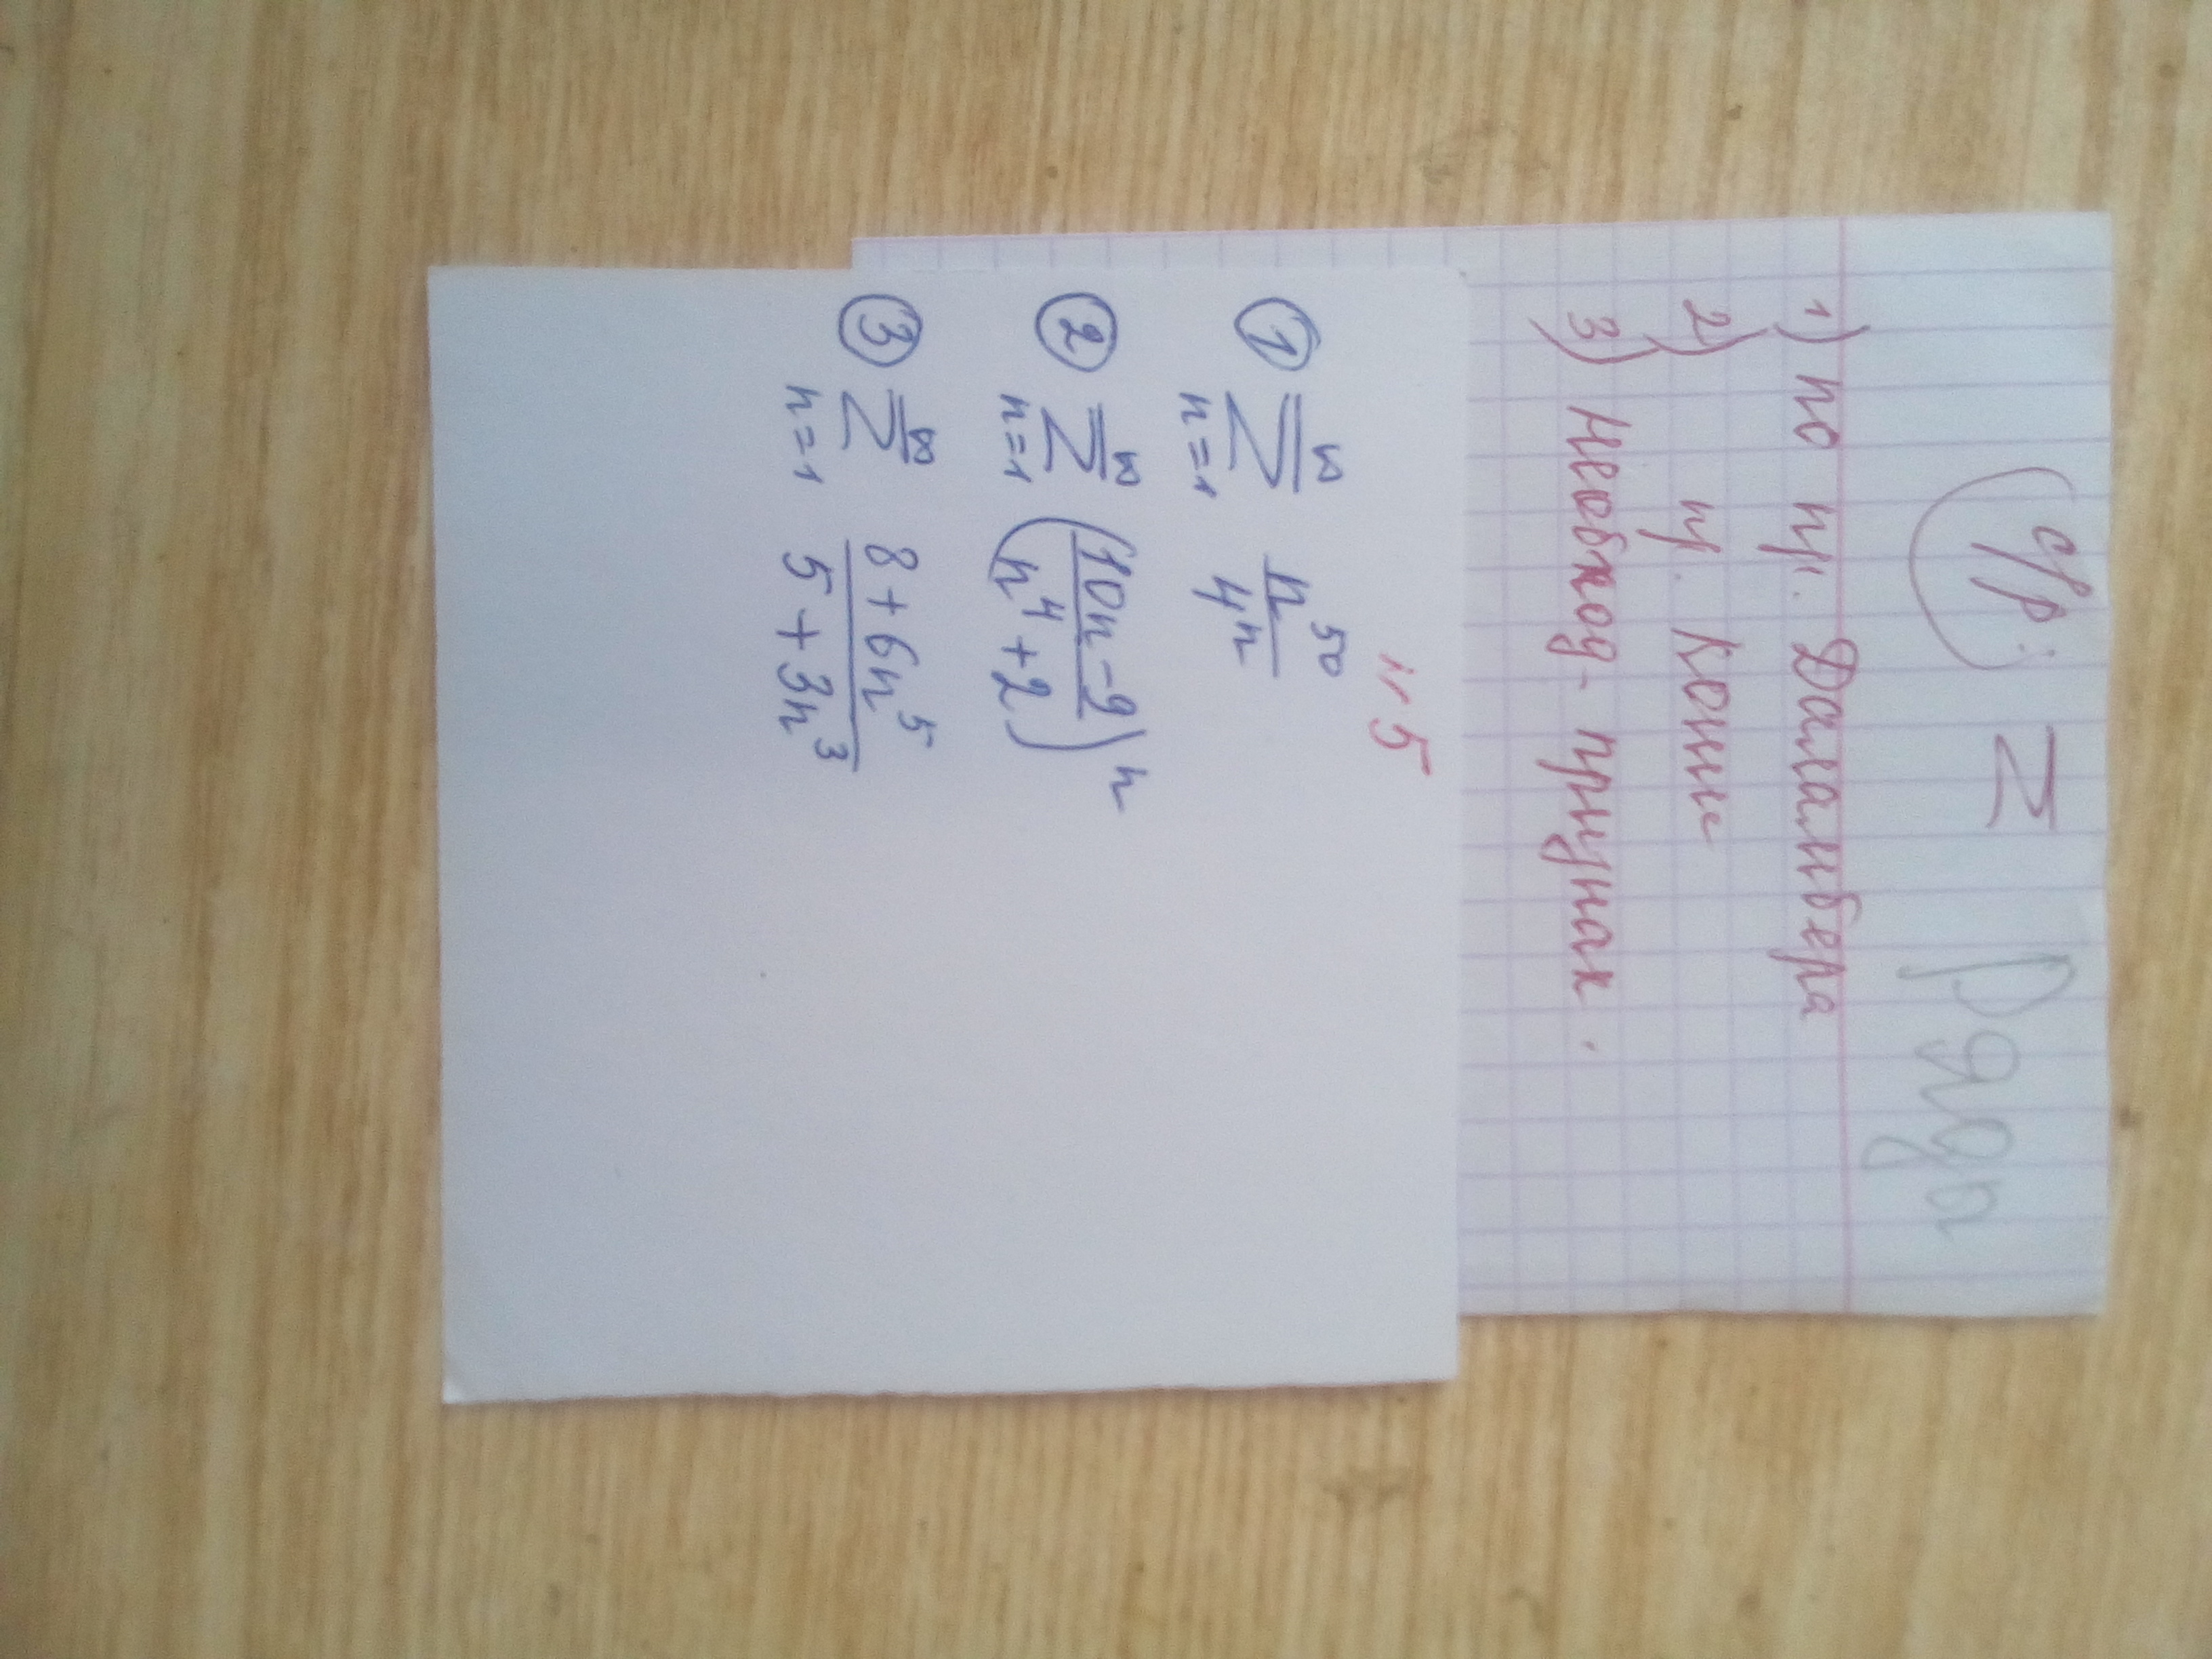 Ср: Σ Ряда
1) по пр. Даламбера
2) пр. Коши
3) Необход- признак.
н5
① ∞ Σ n=1 n^50 / 4^n
② ∞ Σ n=1 ((10n-9) / (n^4+2))^n
③ ∞ Σ n=1 (8+6n^5) / (5+3n^3)